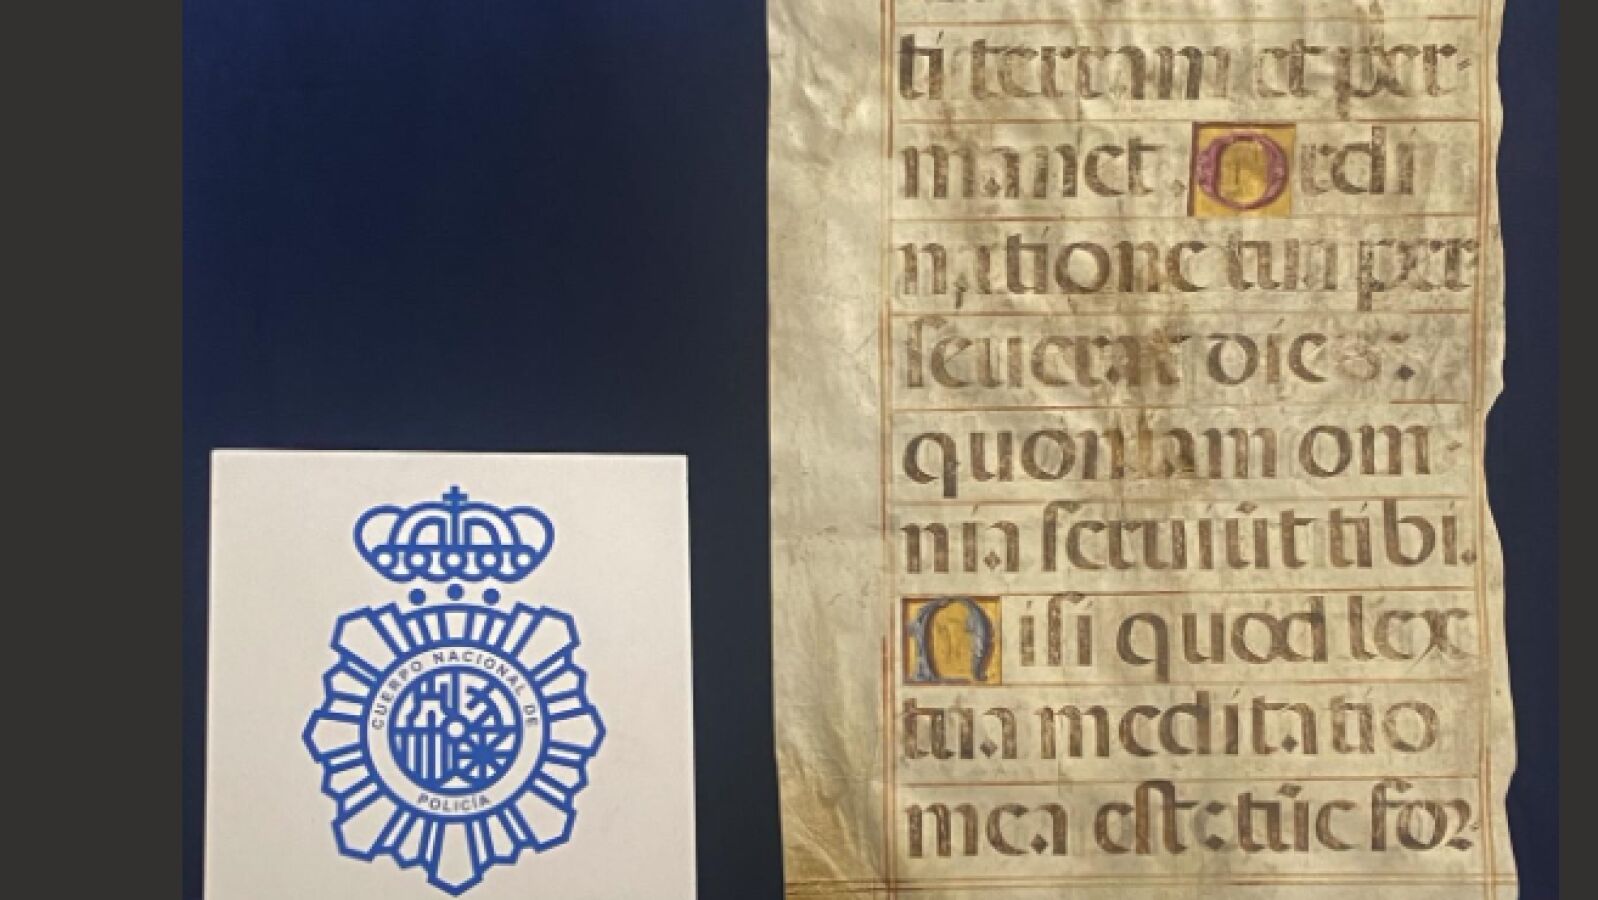 ti terram et per-
manet. Ordi
natione tua per-
seuerat dies:
quoniam om-
nia seruiūt tibi.
Nisi quod lex
tua meditatio
mea est: tūc for
CUERPO NACIONAL DE
POLICÍA